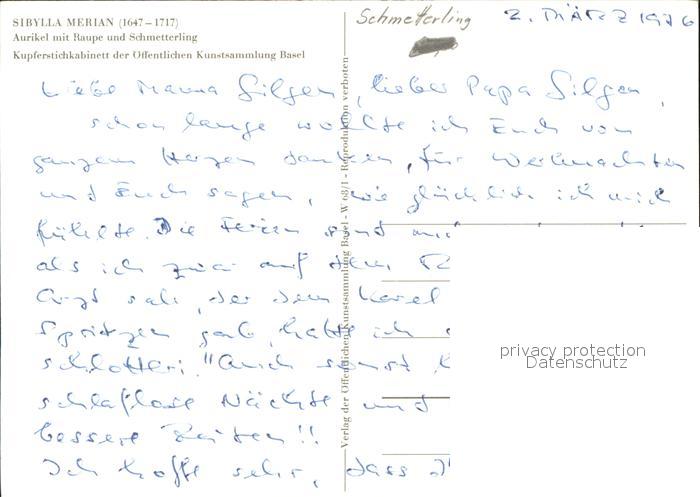 SIBYLLA MERIAN (1647–1717)
Aurikel mit Raupe und Schmetterling
Kupferstichkabinett der Öffentlichen Kunstsammlung Basel
Schmetterling
2. MÄRZ 1976
Liebe Mama Gilgen, lieber Papa Gilgen,
schon lange wollte ich Euch von
ganzem Herzen danken, für Weihnachten
und Euch sagen, wie glücklich ich mich
fühlte. Die Ferien sind
als ich auf dem
Arzt sah, der dem Karel
Spritzen gab, hatte ich
schlotteri. "Auch sonst
schlaflose Nächte und
bessere Zeiten!!
Ich hoffe sehr, dass
Verlag der Öffentlichen Kunstsammlung Basel - W 68/1 - Reproduktion verboten
privacy protection
Datenschutz